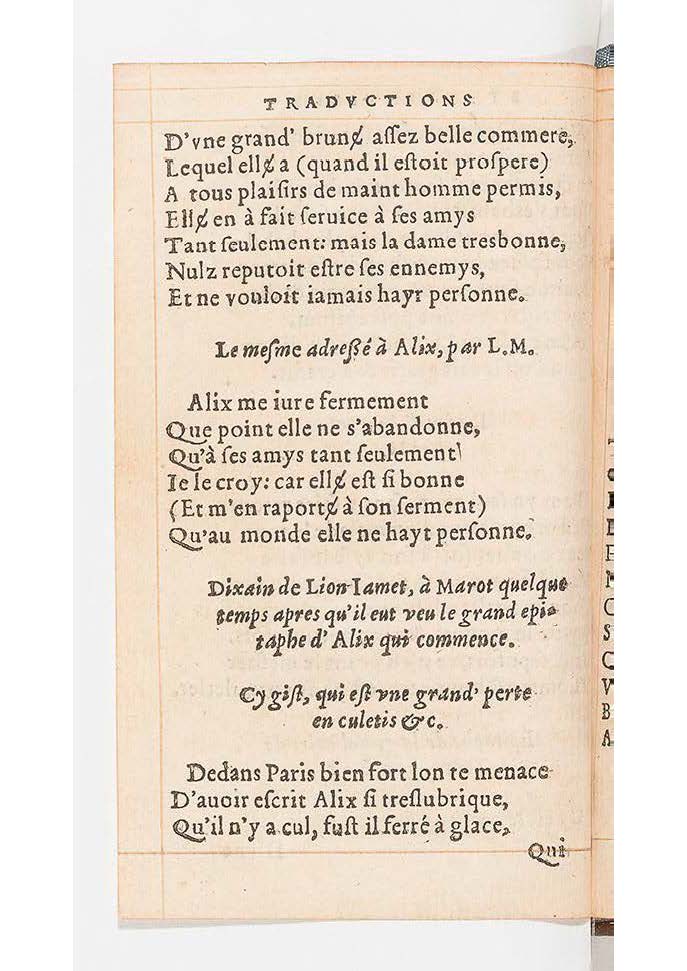 TRADVCTIONS
D'vne grand' brunɇ aſſez belle commere,
Lequel ellɇ a (quand il eſtoit proſpere)
A tous plaiſirs de maint homme permis,
Ellɇ en à fait ſeruice à ſes amys
Tant ſeulement: mais la dame tresbonne,
Nulz reputoit eſtre ſes ennemys,
Et ne vouloit iamais hayr perſonne.
Le meſme adreſſé à Alix, par L.M.
Alix me iure fermement
Que point elle ne s'abandonne,
Qu'à ſes amys tant ſeulement
Ie le croy: car ellɇ eſt ſi bonne
(Et m'en raportɇ à ſon ſerment)
Qu'au monde elle ne hayt perſonne.
Dixain de Lion Iamet, à Marot quelque
temps apres qu'il eut veu le grand epi-
taphe d'Alix qui commence.
Cy giſt, qui eſt vne grand' perte
en culetis &c.
Dedans Paris bien fort lon te menace
D'auoir eſcrit Alix ſi treſlubrique,
Qu'il n'y a cul, fuſt il ferré à glace,
Qui